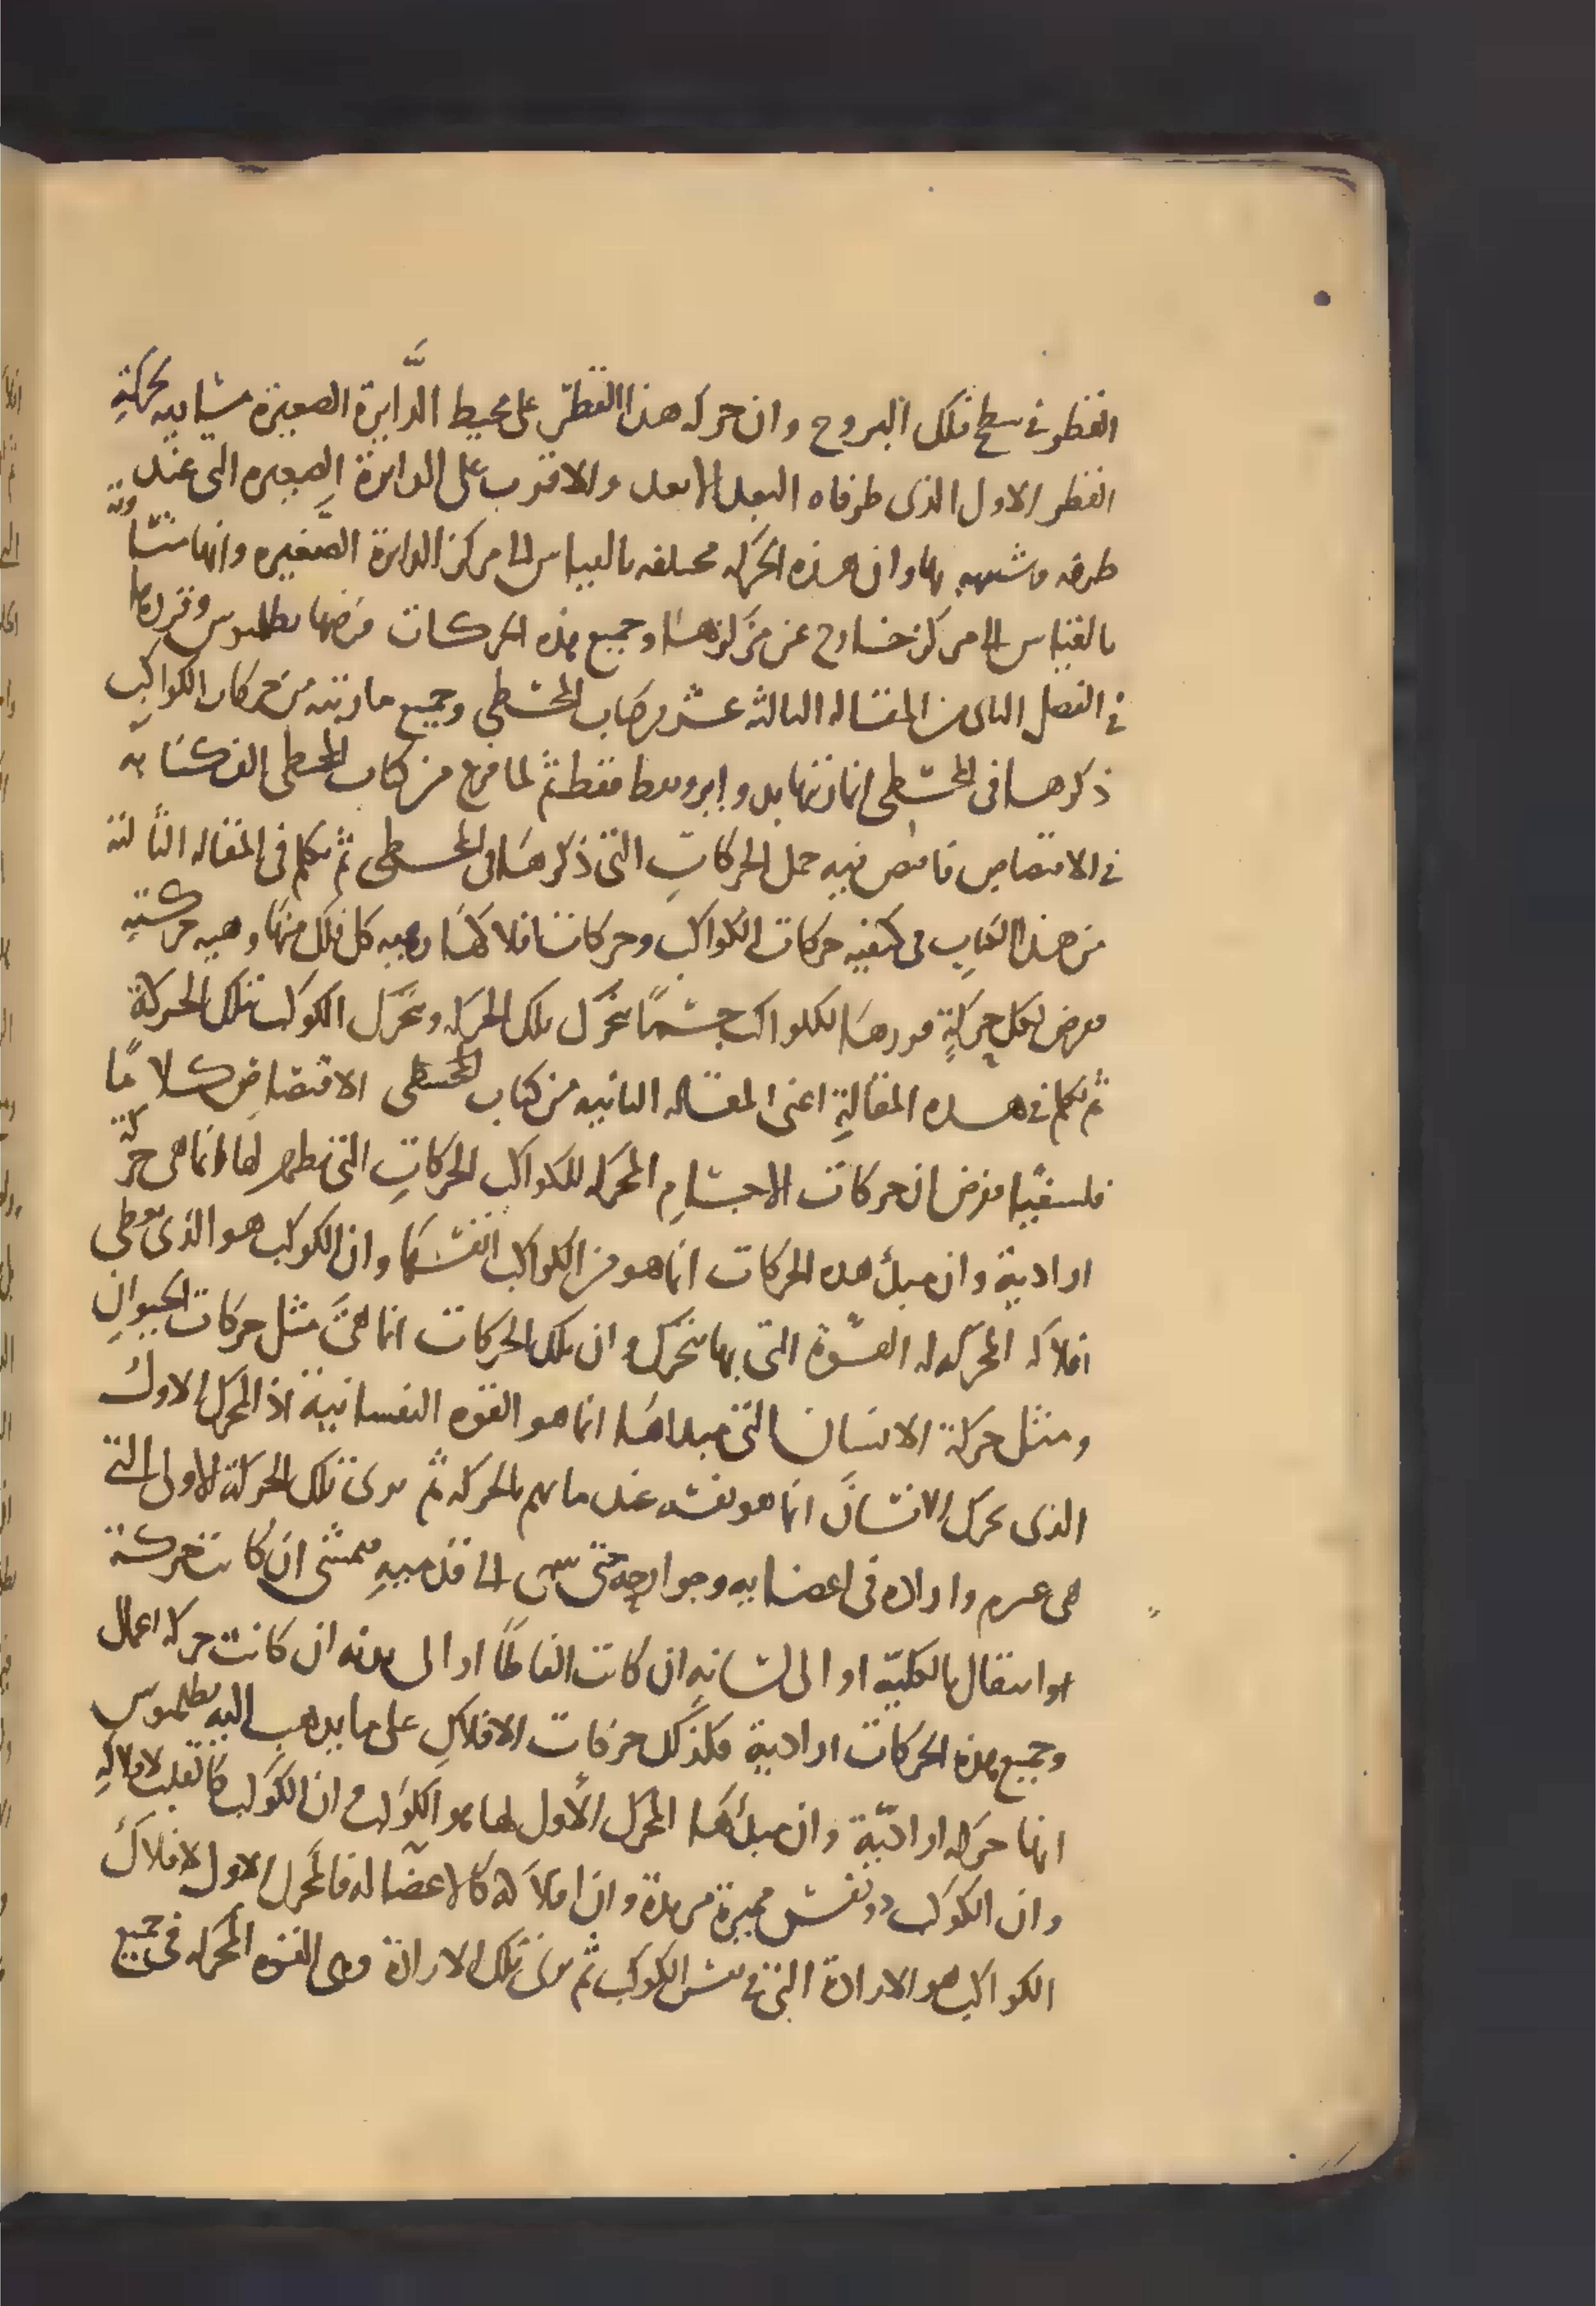 القطر في سطح فلك البروج وان حركه هذا القطر على محيط الدايرة الصغيرة مشابهه لحركة
القطر الاول الذى طرفاه البعد الابعد والاقرب على الدايرة الصغيره التى عند
طرفه وشبيهه بها وان هذه الحركه مختلفه بالقياس الى مركز الدايرة الصغيره وانها متساوية
بالقياس الى مركز خارج عن مركزها وجميع هذه الحركات فرضها بطلميوس وقررها
في الفصل الثانى من المقاله الثالثه عشر من كتاب المجسطي وجميع ما رتبه من حركات الكواكب
ذكرها فى المجسطي انما رتبها بدواير ونقط فقط ثم لما فرغ من كتاب المجسطى الف كتابه
في الاقتصاص فاقتص فيه جمل الحركات التى ذكرها فى المجسطى ثم تكلم فى المقاله الثانية
من هذا الكتاب فى كيفيه حركات الكواكب وحركات افلاكها وهيه كل فلك منها وهيه حركته
ففرض لكل حركة قررها للكواكب جسمًا يتحرك بتلك الحركه ويحرك الكوكب بتلك الحركة
ثم تكلم في هذه المقالة اعنى المقاله الثانيه من كتاب المجسطى الاقتصاص كلامًا
فلسفيًا ففرض ان حركات الاجسام المحركه للكواكب الحركات التى تظهر لها انما هى حركة
ارادية وان مبدأ هذه الحركات انما هو من الكواكب انفسها وان الكوكب هو الذى يعطى
افلاكه المحركه له القوة التى بها تتحرك وان تلك الحركات انما هى مثل حركات الحيوان
ومثل حركة الانسان التى مبداها انما هو القوه النفسانية اذ المحرك الاول
الذى يحرك الانسان انما هو نفسه عند ما يهم بالحركه ثم تسرى تلك الحركة الاولى التى
هى عزم واراده فى اعضايه وجوارحه حتى تنتهى الى قدميه فيمشى ان كانت حركة
او انتقال بالكلية او الى لسانه ان كانت الفاظًا او الى يديه ان كانت حركه اعمال
وجميع هذه الحركات ارادية فكذلك حركات الافلاك على ما يذهب اليه بطلميوس
انها حركه ارادية وان مبدأها المحرك الأول لها هو الكوكب وان الكوكب كالقلب لافلاكه
وان الكوكب ذو نفس مميزة مريدة وان افلاكه كالاعضا له فالمحرك الاول لافلاك
الكواكب هو الارادة التى في نفس الكوكب ثم تسرى تلك الارادة وهى القوه المحركه فى جميع